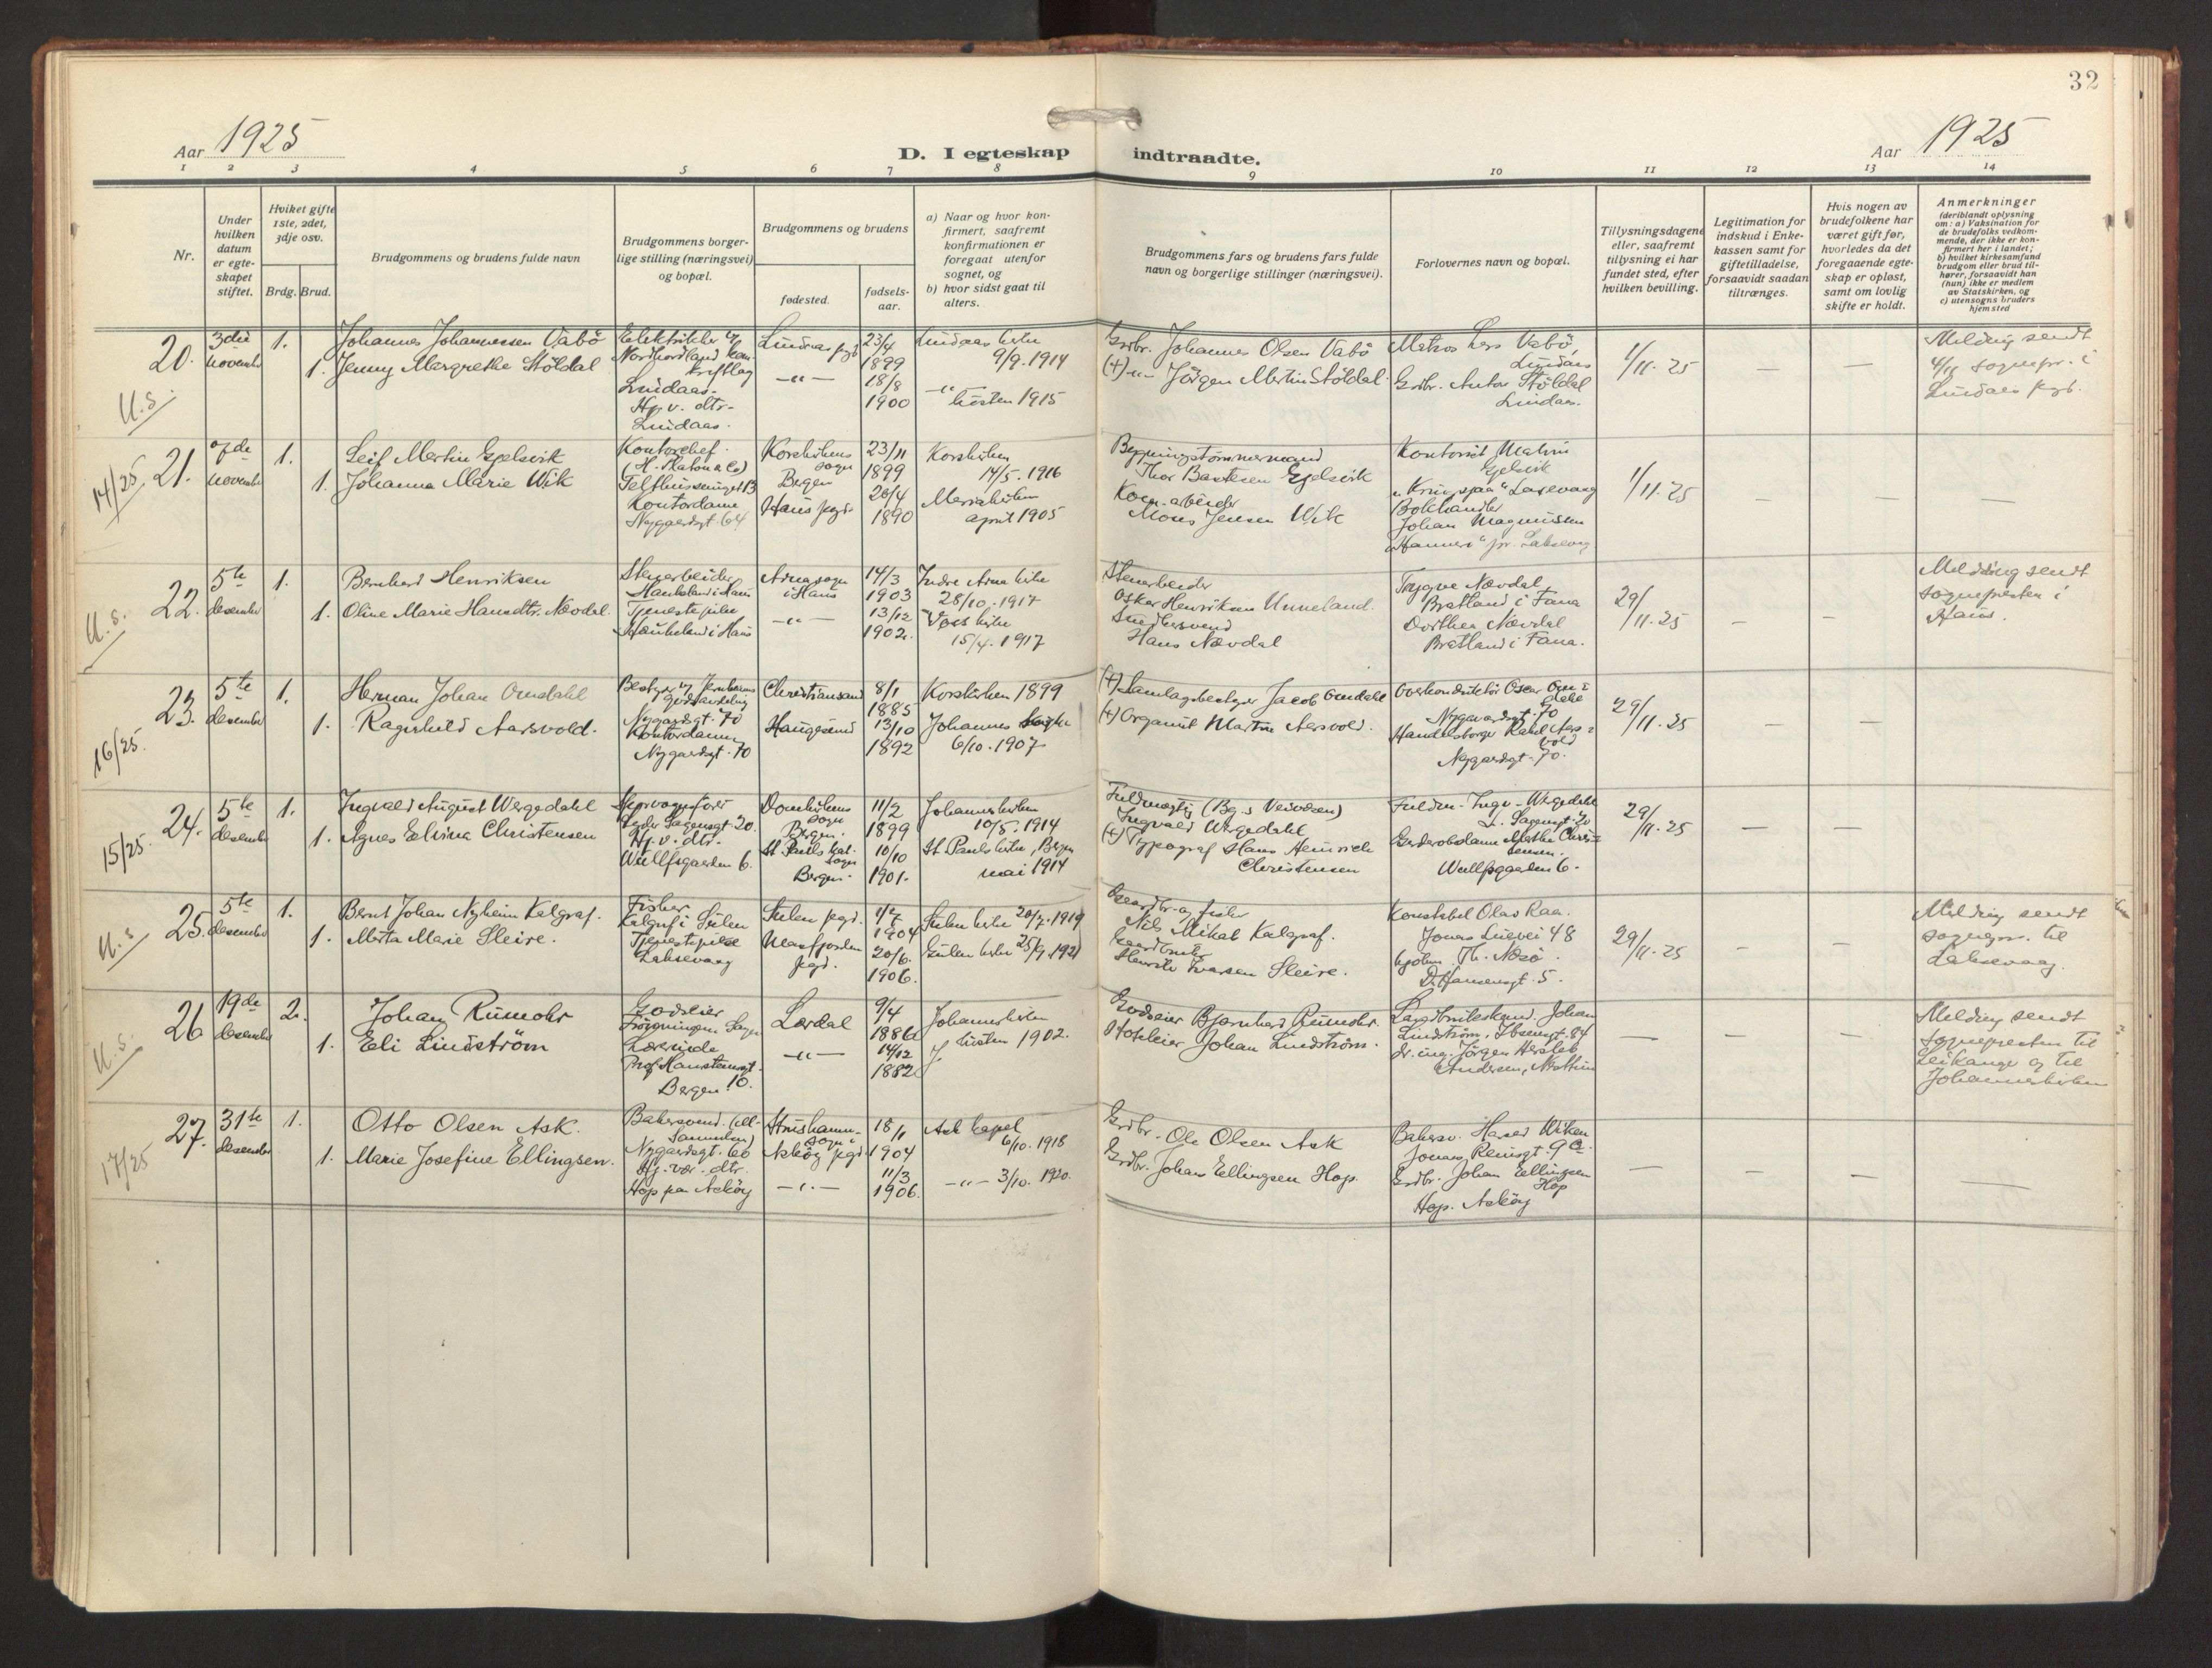 32
Aar 1925
D. I egteskap indtraadte.
Aar 1925
1 2 3 4 5 6 7 8 9 10 11 12 13 14
Nr.
Under hvilken datum er egte-skapet stiftet.
Hviket gifte 1ste, 2det, 3dje osv.
Brdg. Brud.
Brudgommens og brudens fulde navn
Brudgommens borger-lige stilling (næringsvei) og bopæl.
Brudgommens og brudens
fødested.
fødsels-aar.
a) Naar og hvor kon-firmert, saafremt konfirmationen er foregaat utenfor sognet, og
b) hvor sidst gaat til alters.
Brudgommens fars og brudens fars fulde navn og borgerlige stillinger (næringsvei).
Forlovernes navn og bopæl.
Tillysningsdagene eller, saafremt tillysning ei har fundet sted, efter hvilken bevilling.
Legitimation for indskud i Enke-kassen samt for giftetilladelse, forsaavidt saadan tiltrænges.
Hvis nogen av brudefolkene har været gift før, hvorledes da det foregaaende egte-skap er opløst, samt om lovlig skifte er holdt.
Anmerkninger
(deriblandt oplysning om: a) Vaksination for de brudefolks vedkom-mende, der ikke er kon-firmert her i landet; b) hvilket kirkesamfund brudgom eller brud til-hører, forsaavidt han (hun) ikke er medlem av Statskirken, og c) utensogns bruders hjemsted
U.s.
20.
3die november
1.
Johannes Johannessen Vabö
1. Jenny Margrethe Stöldal
Elektriker v/
Nordhordland kom.
kraftlag
Lindaas.
Hj. v. dtr.
Lindaas.
Lindaas pgd
23/4 1899
-"-
18/8 1900
Lindaas kirke
9/9. 1914
-"-
hösten 1915
Grdbr. Johannes Olsen Vabö
(+) -"- Jörgen Martin Stöldal.
Matros Lars Vabö
Lindås
Grdbr. Anton Stöldal
Lindaas.
1/11. 25
—
—
Melding sendt
4/11 sognepr. i
Lindaas pgd.
14/25
21.
7de november
1.
Leif Martin Gjelsvik
1. Johanna Marie Wik
Kontorchef
(H. Platou & Co)
13
Kontordame
Nygaardsgt. 64
Korskirkens sogn
Bergen
23/11 1899
Haus pgd.
20/4 1890
Korskirken
14/5. 1916
Mariakirken
april 1905
Bygningstømmermand
Thor Bastesen Gjelsvik
arbeider
Mons Jensen Wik
Kontorist Malvin
Gjelsvik
Laxevaag
Bokhandler
Johan Magnussen
pr. Laksevaag
1/11. 25
—
—
—
U.s.
22.
5te desember
1.
Bernhard Henriksen
1. Oline Marie Hansdtr. Nævdal.
Stenarbeider
Haukeland i Haus
Tjenestepike
Haukeland i Haus
Arna sogn i Haus
14/3 1903
-"-
13/12 1902.
Indre Arna kirke
28/10. 1917
Voss kirke
15/4. 1917
Stenarbeider
Oskar Henriksen Unneland.
Snedkersvend
Hans Nævdal
Trygve Nævdal
Bratland i Fana
Dorthea Nævdal
Bratland i Fana.
29/11. 25
—
—
Melding sendt
sognepresten i
Haus.
16/25.
23.
5te desember
1.
Herman Johan Omdahl
1. Ragnhild Aarsvold.
Bestyrer v/ Jernbanens
godsavdeling
Nygaardsgt. 70
Kontordame
Nygaardsgt. 70
Christiansand
8/1 1885
Haugesund
13/10 1892
Korskirken 1899
Johannes
6/10. 1907
(+) Samlagsbestyrer Jacob Omdahl
(+) Organist Martin Aarsvold.
Overkonduktör Oscar Om=
dahl
Nygaardsgt. 70
Aars=
vold
Nygaardsgt. 70.
29/11. 25
—
—
15/25.
24.
5te desember
1.
Ingvald August Wergedahl
1. Agnes Elvina Christensen
Lyder Sagensgt. 20.
Hj. v. dtr.
Wulffsgaarden 6.
Domkirkens sogn
Bergen.
11/2 1899
St. Pauls kat. sogn
Bergen.
10/10 1901.
Johanneskirken
10/5. 1914
St. Pauls kirke, Bergen
mai 1914
Fuldmægtig (Bg.s Veivæsen)
Ingvald Wergedahl
(+) Typograf Hans Heinrich
Christensen
Fuldm. Ingv. Wergedahl
L. Sagensgt. 20
Garderobedame Chris=
tensen.
Wulffsgaarden 6.
29/11. 25
—
—
U.s
25.
5te desember
1.
Bernt Johan Nyheim Kalgraf.
1. Marta Marie Sleire.
Fisker
Kalgraf i Sulen
Tjenestepike
Laksevaag
Sulen pgd.
1/7 1904
Masfjorden pgd.
20/6. 1906.
Sulen kirke 20/7. 1919
Gulen kirke 25/9 1921
Gaardbr. og fisker
Nils Mikal Kalgraf.
Gaardbruker
Henrik Ivarsen Sleire.
Konstabel Olav Raa.
Jonas Lies vei 48
Kjöbm. Th. Næsö.
D. Hansensgt. 5.
29/11. 25
—
—
Melding sendt
sognepr. til
Laksevaag.
U.s.
26
19de desember
2.
Johan Rumohr
1. Eli Lindström
Godseier
Frönningen, Sogn
Lærerinde
Prof. Hansteensgt.
10.
Bergen
Lærdal
9/4 1886
-"-
14/12 1882
Johanneskirken
hösten 1902.
Godseier Bjarnhard Rumohr.
Hoteleier Johan Lindström.
Landbrukskand. Johan
Lindström, Ibsensgt. 84
dr. ing. Jörgen Hersleb
Andersen, Nesttun
—
—
—
Melding sendt
sognepresten til
Leikanger og til
Johanneskirken
17/25
27.
31te desember
1.
Otto Olsen Ask.
1. Marie Josefine Ellingsen.
Bakersvend.
Nygaardsgt. 60
Hj. vær. dtr.
Hop paa Asköy
Strushamn sogn i
Asköy pgd
18/1 1904
-"-
11/3 1906.
Ask kapel
6/10. 1918
-"- 3/10. 1920.
Grdbr. Ole Olsen Ask
Grdbr. Johan Ellingsen Hop.
Bakersv. Harald Wiken
Jonas Reinsgt. 9
Grdbr. Johan Ellingsen
Hop
Hop. Asköy
—
—
—
—